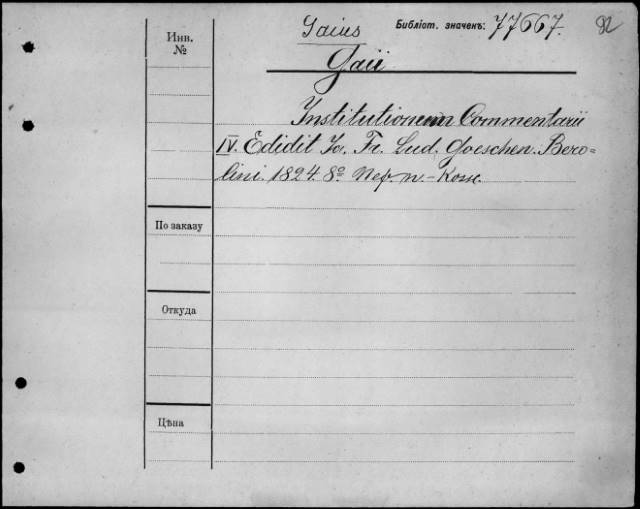 Инв. №
Gaius
Библіот. значекъ: 77667.
82
Gaii
Institutionum Commentarii
IV. Edidit Io. Fr. Lud. Goeschen. Bero=
lini. 1824. 8º
По заказу
Откуда
Цѣна